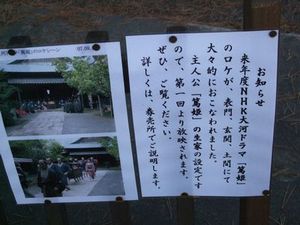 お知らせ
来年度NHK大河ドラマ「篤姫」
のロケが、表門、玄関、土間にて
大々的におこなわれました。
主人公「篤姫」の生家の設定です
ので、第一回より放映されます。
ぜひ、ご覧ください。
詳しくは、券売所でご説明します。